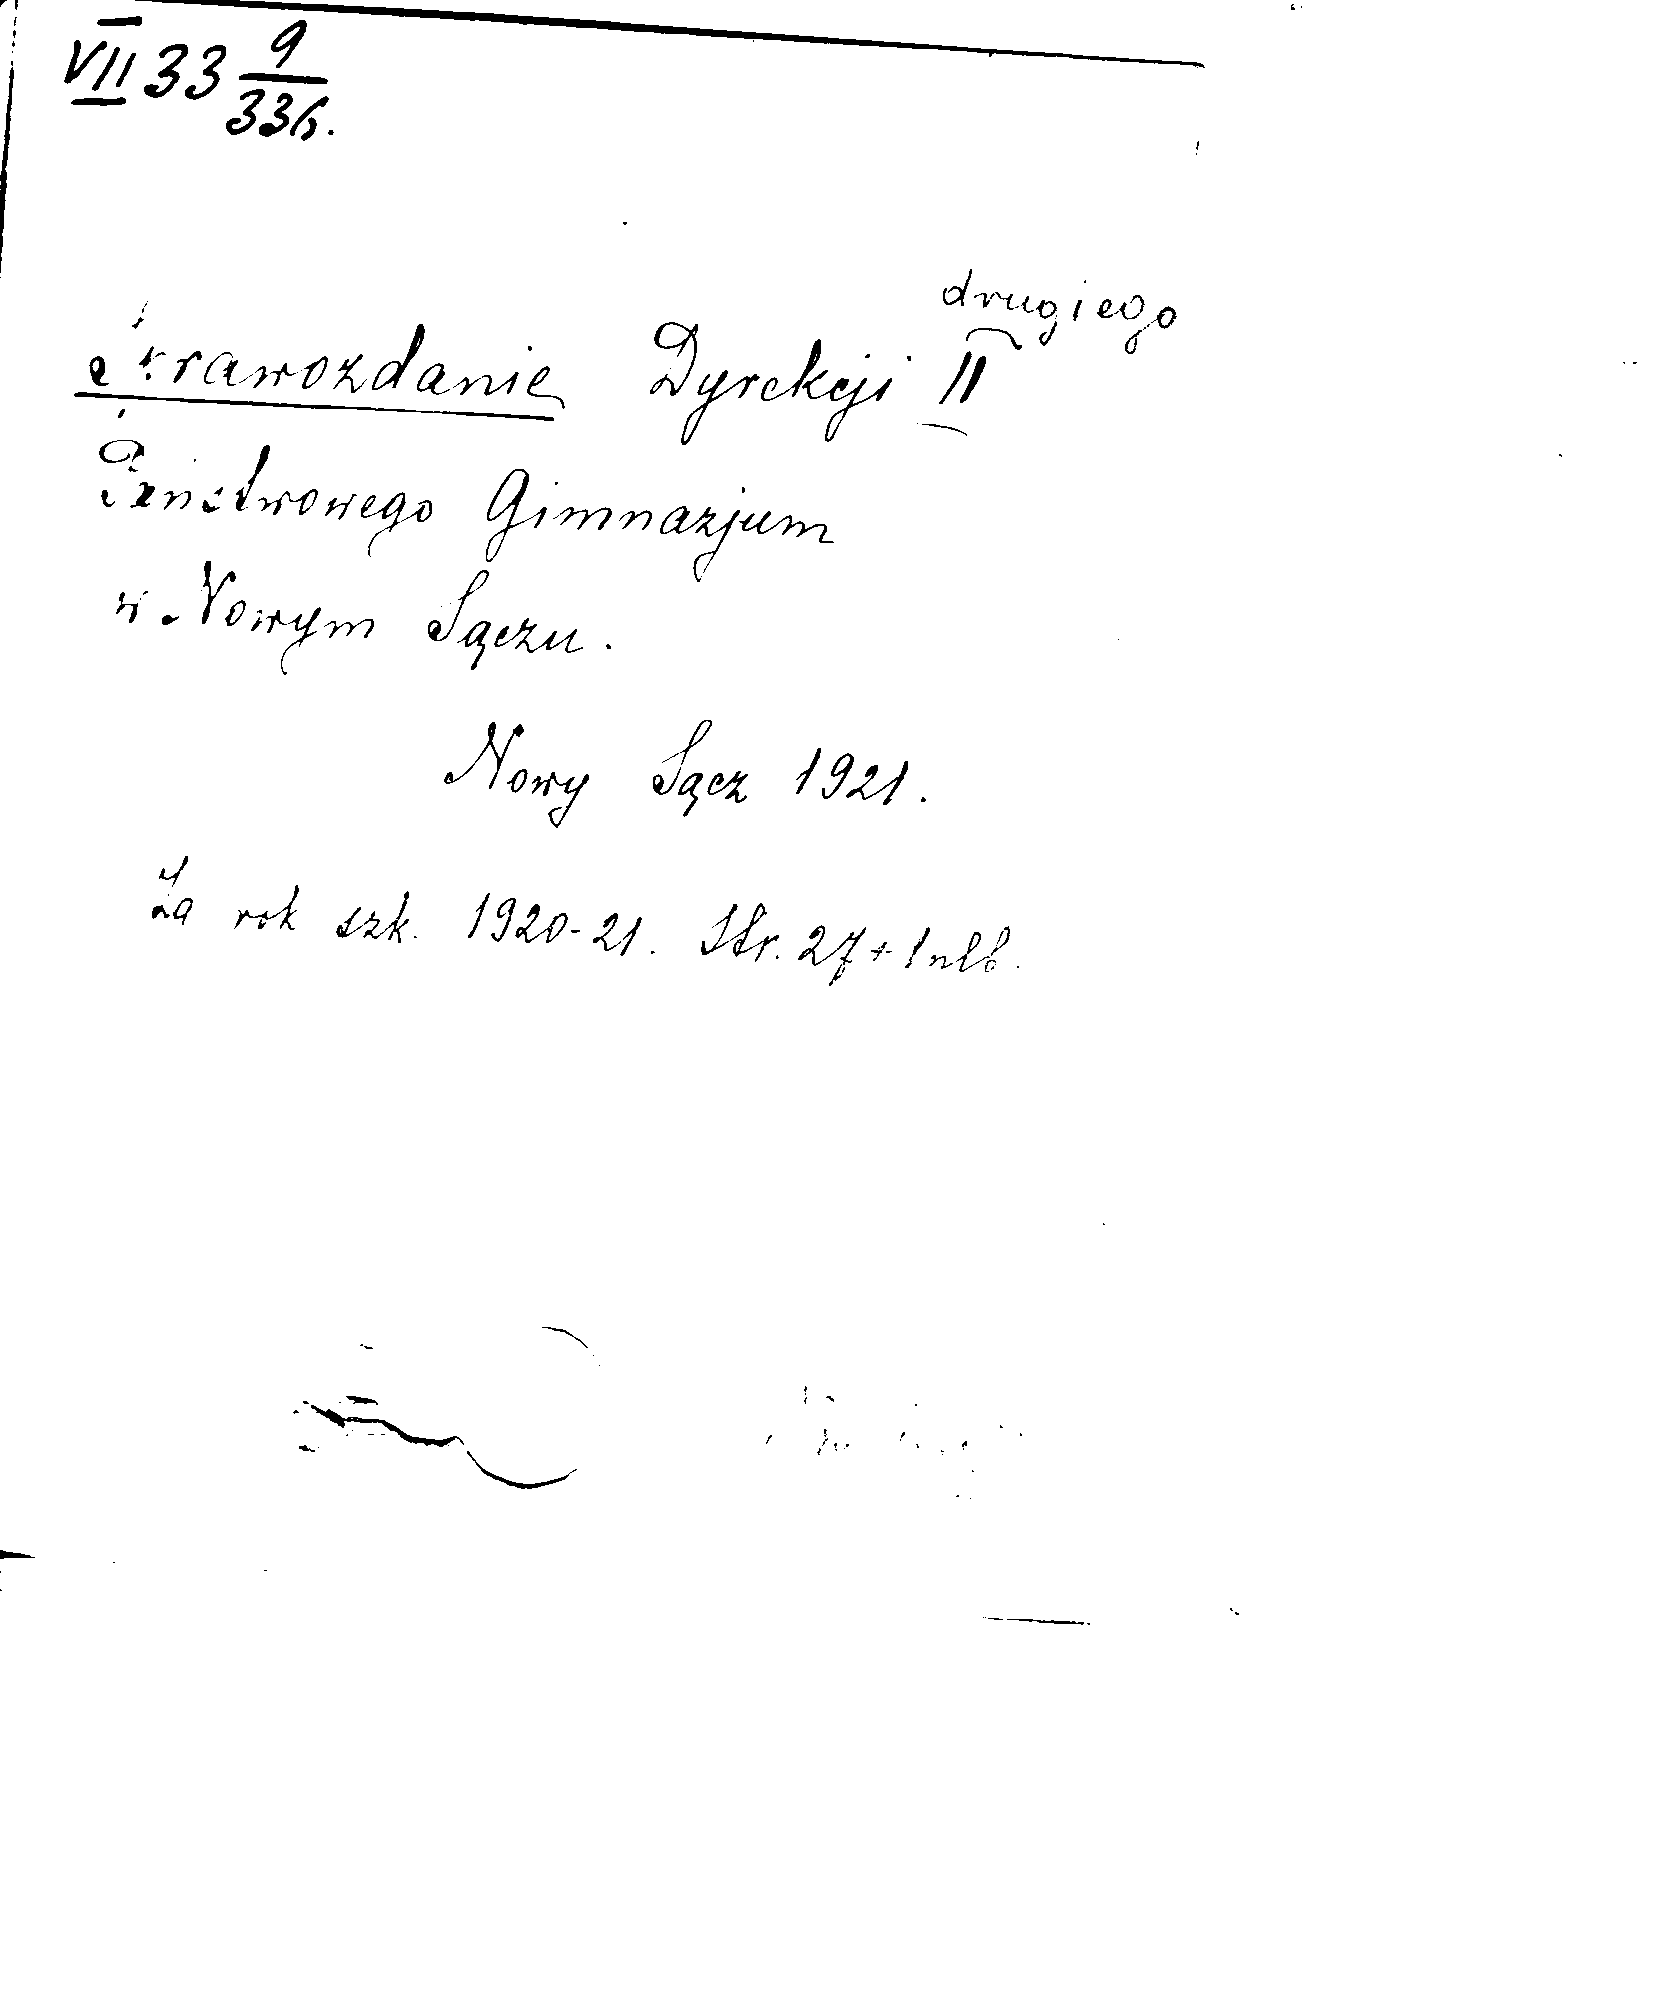 VII 33 9/336.
drugiego
Sprawozdanie Dyrekcji II
Państwowego Gimnazjum
w Nowym Sączu.
Nowy Sącz 1921.
Za rok szk. 1920-21. Str. 27 + 1 nlb.